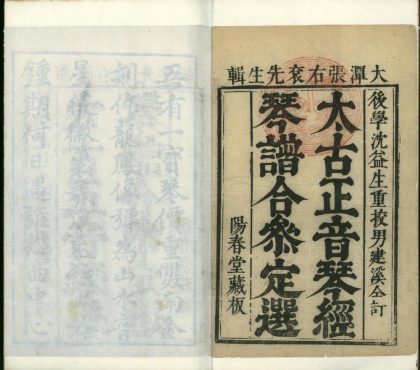 大潭張右袞先生輯
後學沈益生重挍男建溪仝訂
太古正音琴經
琴譜合參定選
陽春堂藏板
吾有一寶琴價重雙南金
刻作龍鳳像
為山水音
鍾期何日遇
曲中心